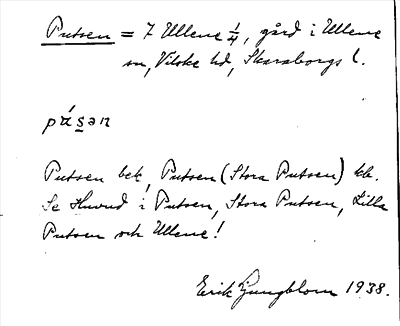 Putsen = 7 Ullene 1/4, gård i Ullene
sn, Vilske hd, Skaraborgs l.
Putsen bek, Putsen (Stora Putsen) kb.
Se Huvud i Putsen, Stora Putsen, Lilla
Putsen och Ullene!
Erik Ljungblom 1938.